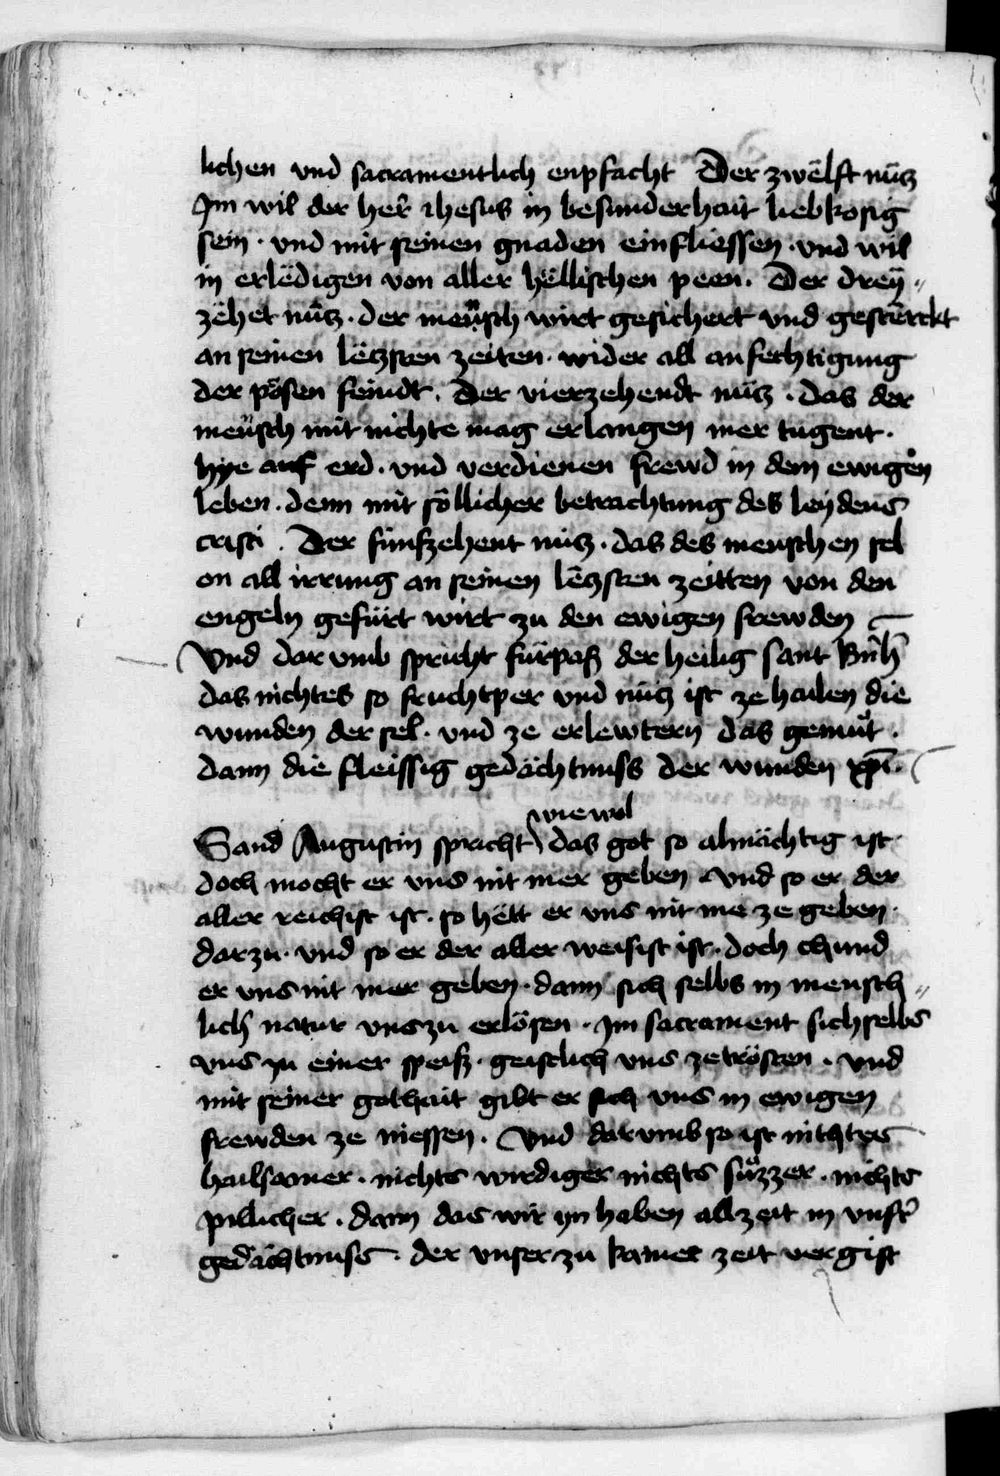 lichen vnd sacramentlich enpfacht Der zwëlft nücz
Im wil der her̃ ihesus in besunderhait liebkosig
sein · vnd mit seinen gnaden einfliessen · vnd wil
in erlëdigen von aller hëllischen peen · Der dreÿ„
zëhet nücz · der mensch wirt gesichert vnd gesterckt
an seinen lëczsten zeiten · wider all anfechtigung
der pösen feindt · Der vierzehendt nücz · das der
mensch mit nichte mag erlangen mer tugent ·
hye auf erd · vnd verdienen frewd in dem ewigen
leben · denn mit söllicher betrachtung des leydens
cristi · Der fünfzehent nücz · das des menschen sel
on all irrung an seinen lëczsten zeitten von den
engeln gefürt wirt zu den ewigen frewden
Vnd dar vmb spricht fürpaß der heilig sant Bñh̃
das nichtes so fruchtper vnd nücz ist ze hailen die
wunden der sel · vnd ze erlewtern das gemüt ·
dann die fleissig gedächtnuss der wunden xp̃i ·
wiewol
Sand Augustin spricht das got so almächtig ist
doch mocht er vns nit mer geben · vnd so er der
aller reichist ist · so hëtt er vns nit me ze geben ·
darzu · vnd so er der aller weisist ist · doch chund
er vns nit mer geben · dann sich selbs in mensch„
lich̃ natur vns zu erlösen · Im sacrament sich selbs
vns zu einer speiß · geistlich vns ze trösten · vnd
mit seiner gothait gibt er sich vns in ewigen
frewden ze niessen · Vnd dar vmb so ist nichtes
hailsamer · nichts wirdiger nichts süzzer · nichts
pillicher · dann das wir yn haben allzeit in vnsr̃
gedächtnuss · der vnser zu kainer zeit vergist